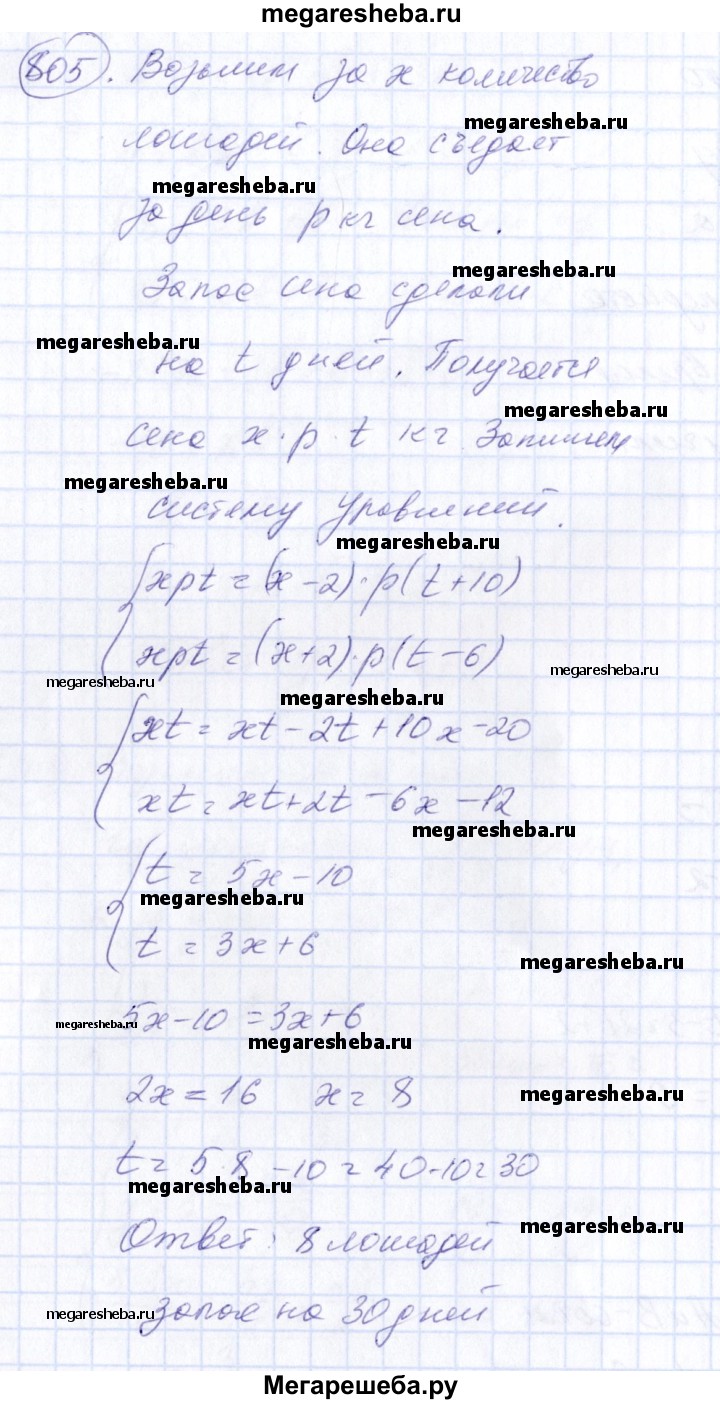 megaresheba.ru
805. Возьмем за x количество
megaresheba.ru
лошадей. Она съедает
megaresheba.ru
за день p кг сена.
megaresheba.ru
Запас сена сделали
megaresheba.ru
на t дней. Получается
megaresheba.ru
сена x·p·t кг. Запишем
megaresheba.ru
систему уравнений.
megaresheba.ru
xpt = (x-2)·p(t+10)
xpt = (x+2)·p(t-6)
megaresheba.ru
megaresheba.ru
megaresheba.ru
xt = xt-2t+10x-20
xt = xt+2t-6x-12
megaresheba.ru
t = 5x-10
megaresheba.ru
t = 3x+6
megaresheba.ru
5x-10 = 3x+6
megaresheba.ru
megaresheba.ru
2x = 16 x = 8
megaresheba.ru
t = 5·8-10 = 40-10 = 30
megaresheba.ru
Ответ: 8 лошадей
megaresheba.ru
запас на 30 дней
megaresheba.ru
Мегарешеба.ру